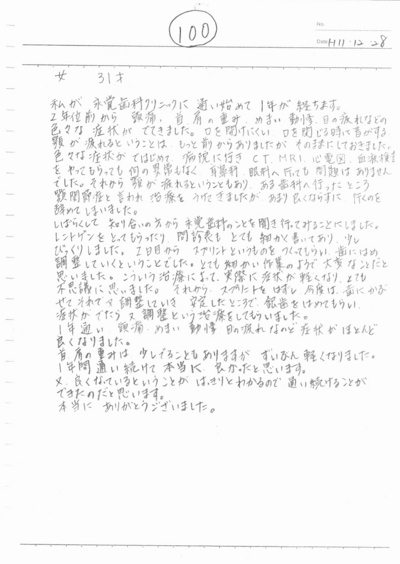 100
No.
Date H11・12・28
女 31才
私が 歯科クリニックに 通い始めて 1年が 経ちます。
2年位前から 頭痛、首肩の重み、めまい 動悸、目の疲れなどの
色々な 症状が でてきました。口を開けにくい 口を閉じる時に音がする
顎が 疲れるということは、もっと前からありましたが そのままにしておきました。
色々な症状が ではじめて 病院に行き CT、MRI、心電図、血液検査
を やってもらっても 何の異常もなく 耳鼻科 眼科へ行っても 問題は ありません
でした。それから 顎が 疲れるということもあり、ある歯科へ行ったところ
顎関節症と言われ 治療を うけてきましたが、あまり良くならずに 行くのを
辞めてしまいました。
しばらくして 知り合いの方から 歯科のことを聞き行ってみることにしました。
レントゲンを とってもらったり 問診表も とても 細かく書いてあり、少し
びっくりしました。2日目から スプリントというものを つくってもらい、歯にはめ
調整していくということでした。とても 細かい作業のようで 大変なことだと
思いました。こういう治療によって、実際に症状が 軽くなり、とても
不思議に思いました。それから、スプリントを はずし 今度は、歯に かぶ
せて それで 調整していき 安定したところで、銀歯を はめてもらい、
症状がでたら 又 調整という治療をしてもらいました。
1年通い 頭痛、めまい 動悸 目の疲れなどの 症状が ほとんど
良くなりました。
首肩の重みは 少しでることもありますが ずいぶん 軽くなりました。
1年間通い続けて 本当に 良かったと思います。
又、良くなっているということが はっきりと わかるので 通い続けることが
できたのだと思います。
本当に ありがとうございました。